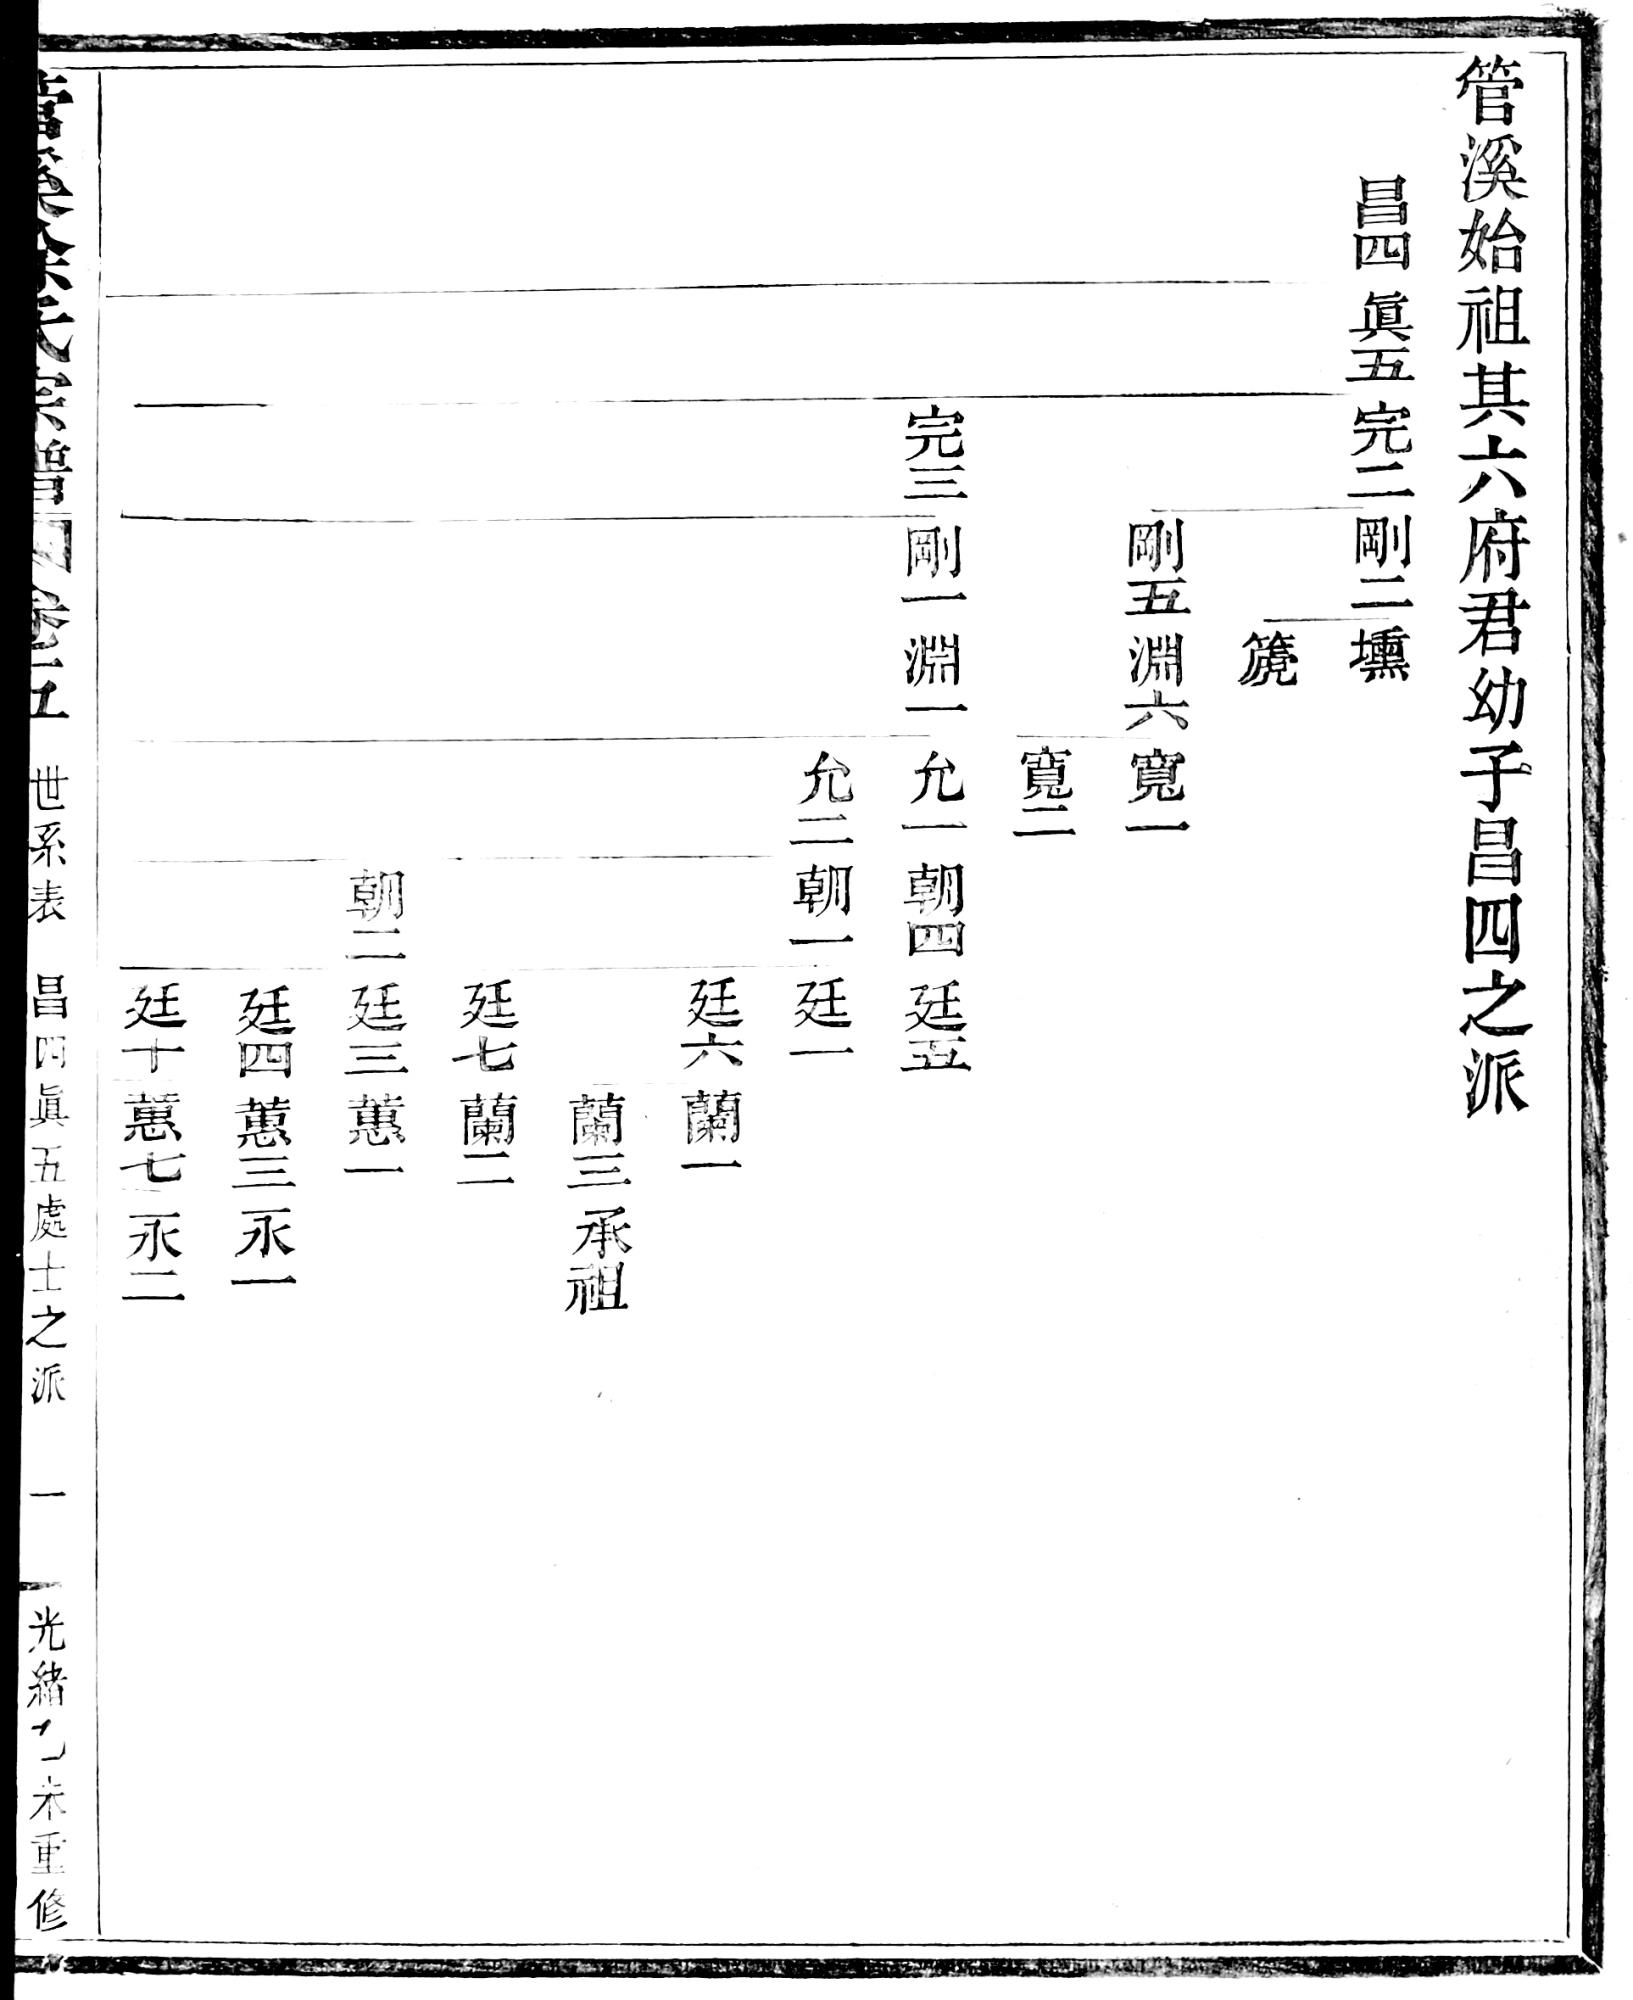 管溪始祖其六府君幼子昌四之派
昌四 眞五 完二 剛二 壎
篪
剛五 淵六 寬一
寬二
完三 剛一 淵一 允一 朝四 廷五
允二 朝一 廷一
廷六 蘭一
蘭三 承祖
廷七 蘭二
朝二 廷三 蕙一
廷四 蕙三 永一
廷十 蕙七 永二
管溪徐氏宗譜 世系表 昌四眞五處士之派 一 光緒乙未重修